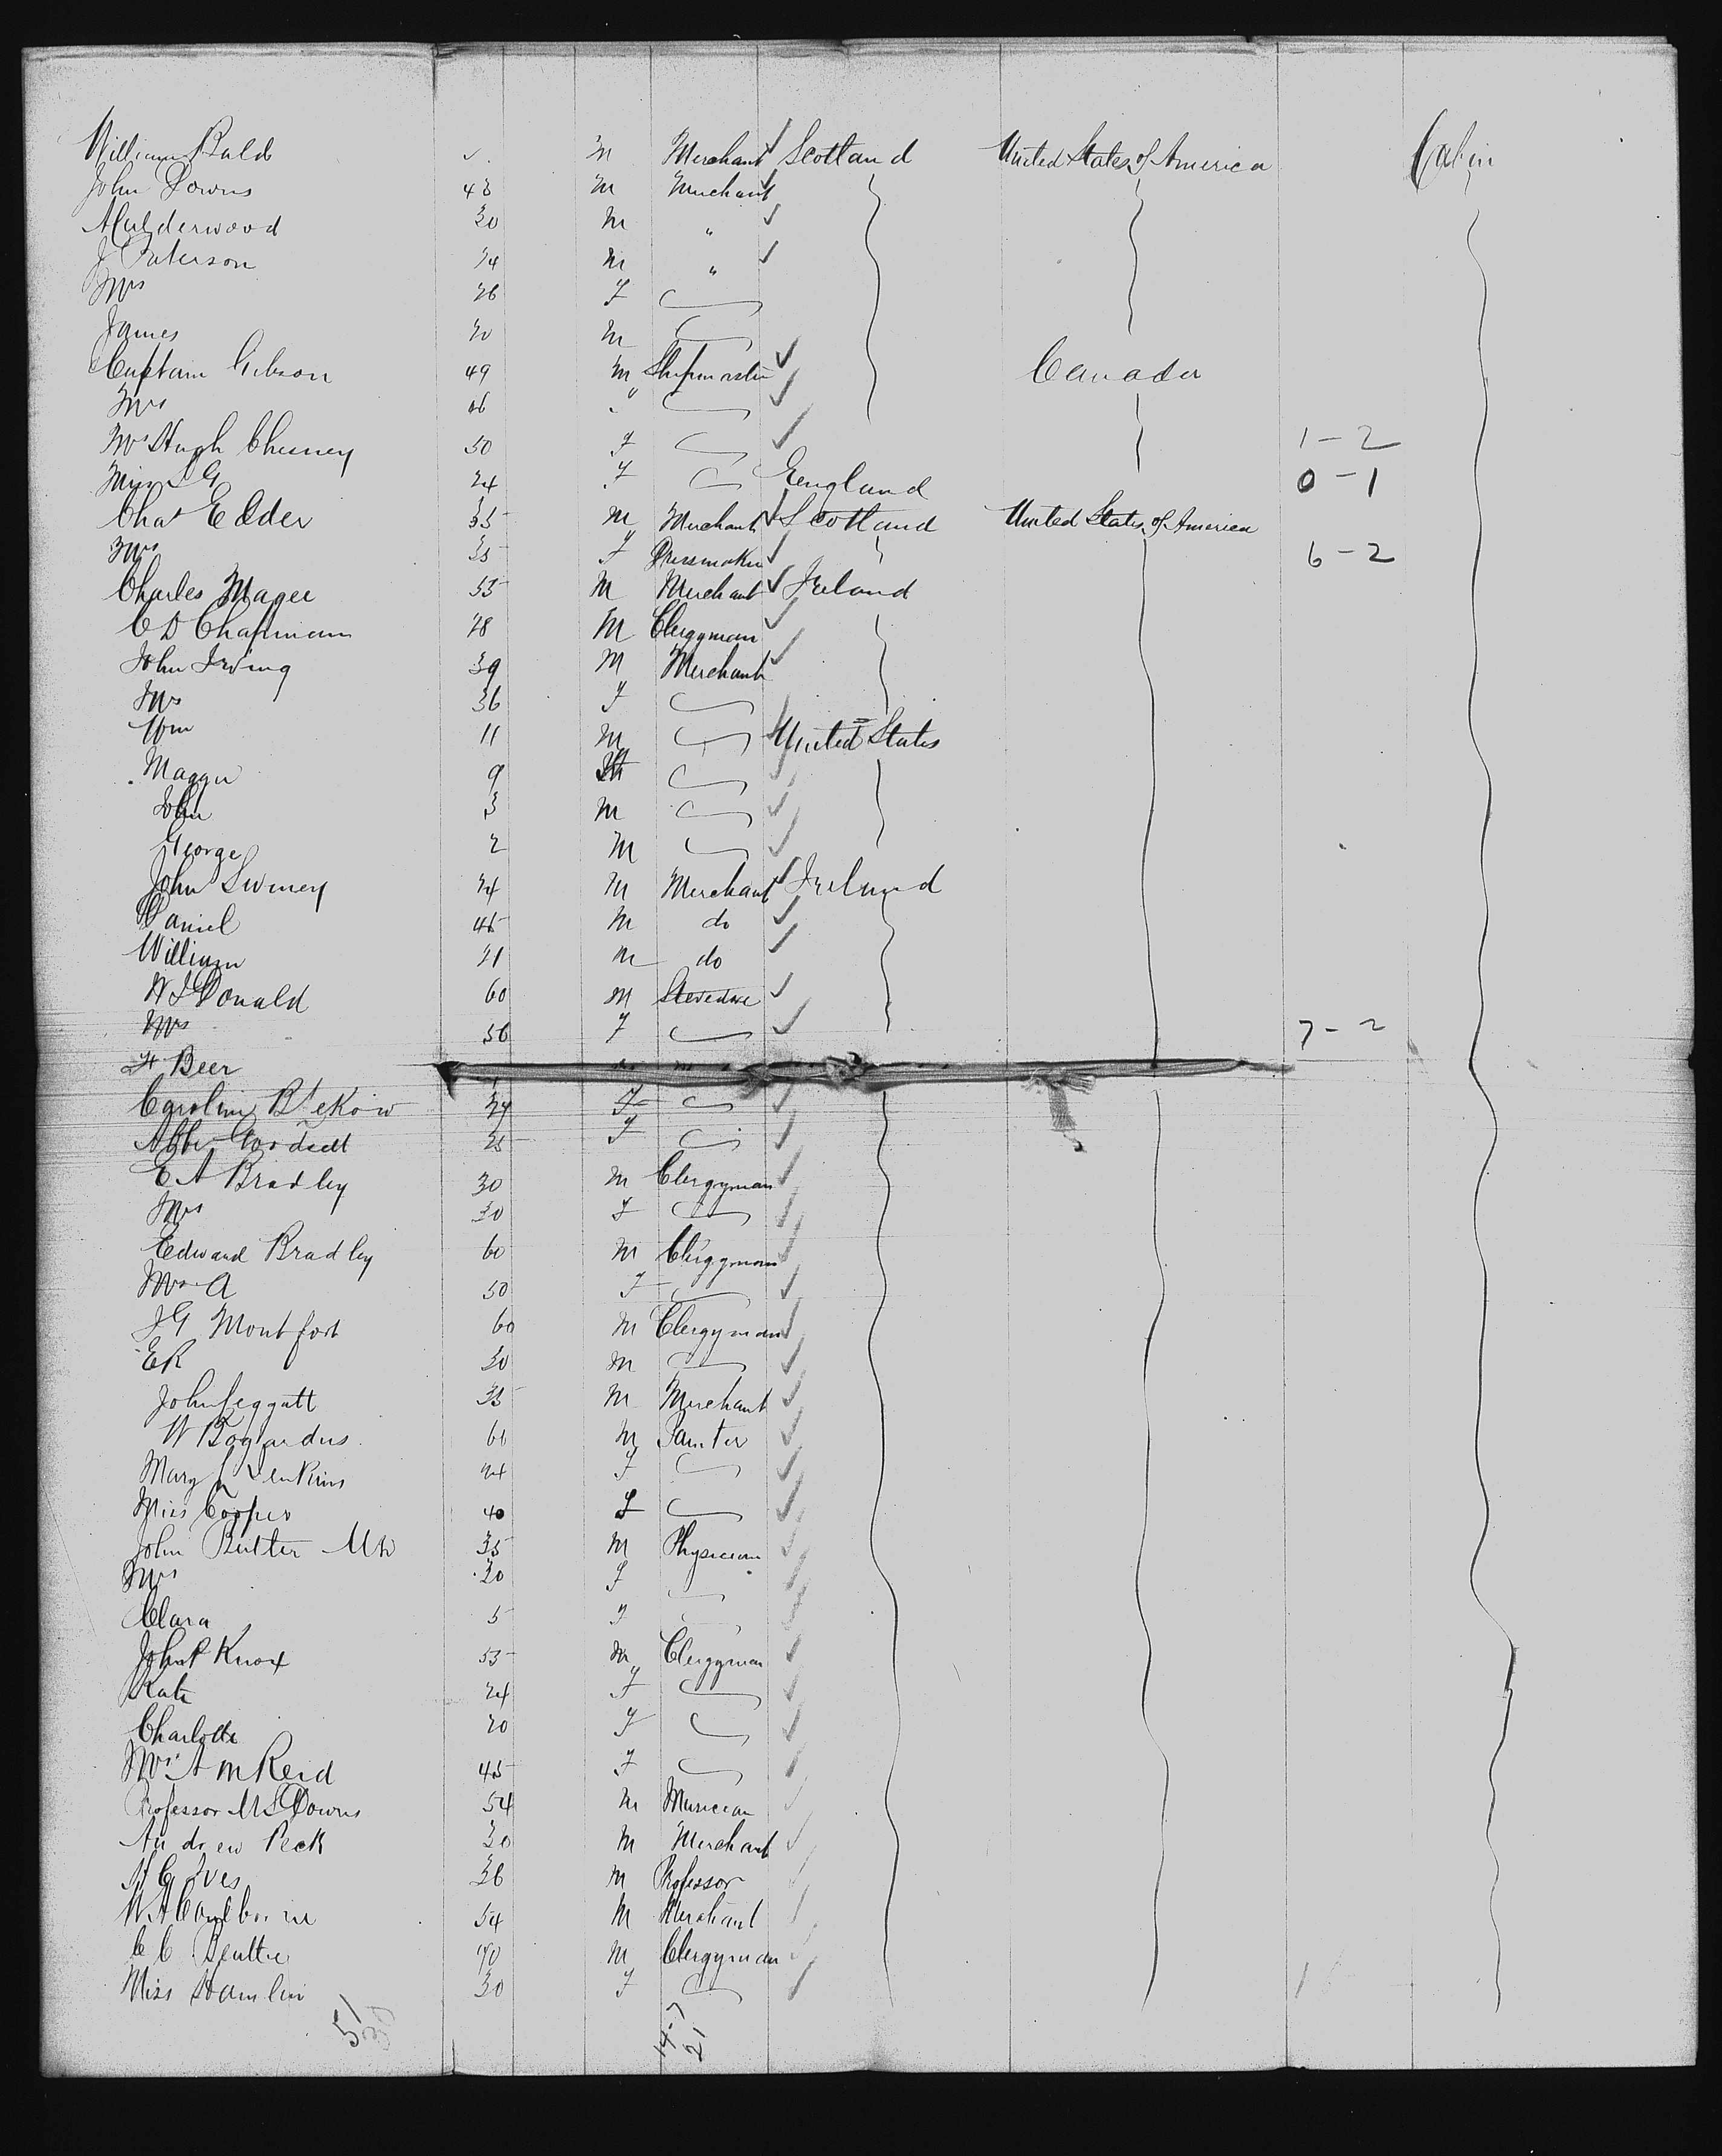 William Bald M Merchant Scotland United States of America Cabin
John Downs 43 M Merchant
A Calderwood 30 M "
J Paterson 24 M "
Mrs 26 F
James 20 M
Captain Gibson 49 M Shipmaster Canada
Mrs 46 "
Mrs Hugh Chesney 50 F 1-2
Miss G 24 F England 0-1
Chas Elder 35 M Merchant Scotland United States of America
Mrs 35 F Dressmaker 6-2
Charles Magee 53 M Merchant Ireland
C D Chapman 28 M Clergyman
John Irving 39 M Merchant
Mrs 36 F
Wm 11 M United States
Maggie 9
John 3 M
George 2 M
John Swiney 24 M Merchant Ireland
Daniel 45 M do
William 21 M do
W Donald 60 M Stevedore
Mrs 56 F 7-2
Beer
Caroline 24 F
Abbie 25 F
E A Bradley 30 M Clergyman
Mrs 30 F
Edward Bradley 60 M Clergyman
Mrs A 50 F
J G Montfort 60 M Clergyman
E R 30 M
John Leggatt 35 M Merchant
W Bogardus 60 M Painter
Mary J Jenkins 24 F
Miss Cooper 40 F
John Butter MD 35 M Physician
Mrs 30 F
Clara 5 F
John P Knox 53 M Clergyman
Kate 24 F
Charlotte 20 F
Mrs A M Reid 45 F
Professor M S Downs 54 M Musician
Andrew Peck 30 M Merchant
H C Ives 36 M Professor
W A 54 M Merchant
C C Beattie 70 M Clergyman
Miss Hamlin 30 F
51
14-7
21